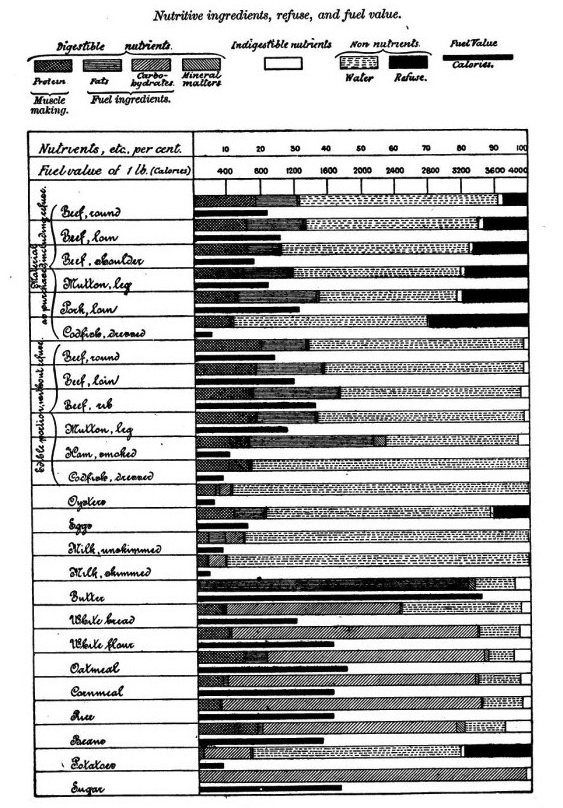 Nutritive ingredients, refuse, and fuel value.
Digestible nutrients. Indigestible nutrients Non-nutrients. Fuel Value
Protein Fats Carbo-hydrates. Mineral matters Water Refuse. Calories.
Muscle making. Fuel ingredients.
Nutrients, etc., per cent. 10 20 30 40 50 60 70 80 90 100
Fuel value of 1 lb. (Calories) 400 800 1200 1600 2000 2400 2800 3200 3600 4000
Material as purchased including refuse.
Beef, round
Beef, loin
Beef, shoulder
Mutton, leg
Pork, loin
Codfish, dressed
Edible portion, without refuse.
Beef, round
Beef, loin
Beef, rib
Mutton, leg
Ham, smoked
Codfish, dressed
Oysters
Eggs
Milk, unskimmed
Milk, skimmed
Butter
White bread
White flour
Oatmeal
Cornmeal
Rice
Beans
Potatoes
Sugar